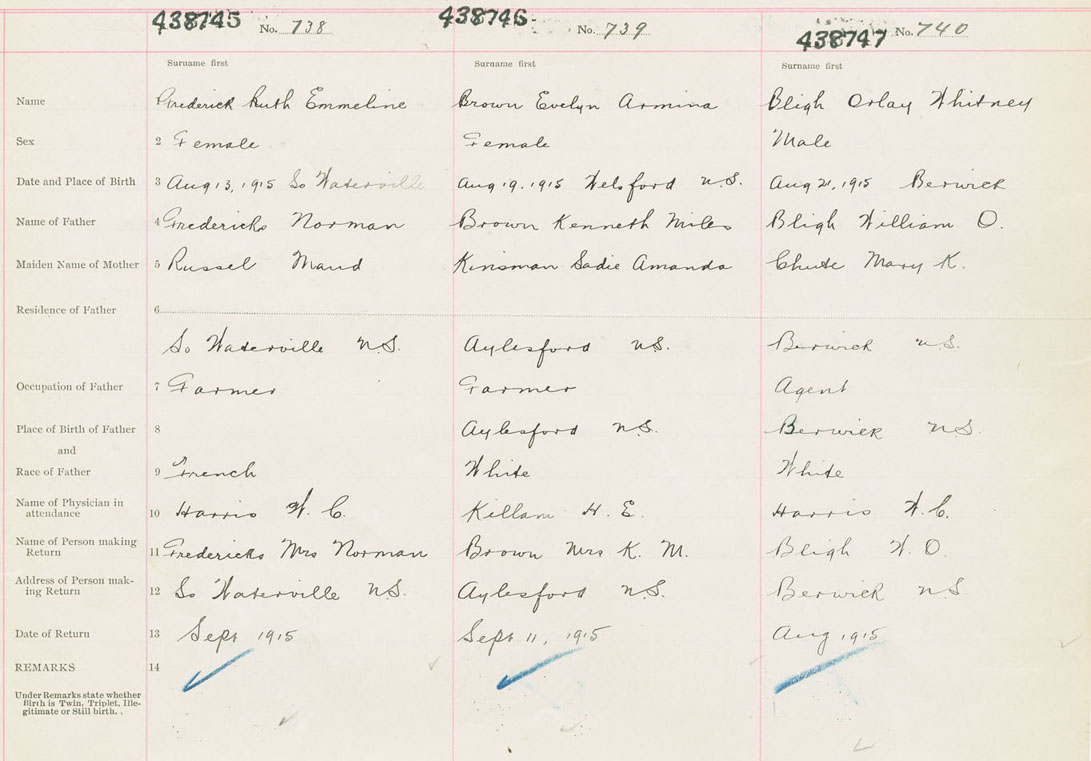 438745 No. 738 438746 No. 739 438747 No. 740
Surname first Surname first Surname first
Name 1 Frederick Ruth Emmeline Brown Evelyn Armina Bligh Orlay Whitney
Sex 2 Female Female Male
Date and Place of Birth 3 Aug 13, 1915 So Waterville Aug 19. 1915 Welsford N.S. Aug 21, 1915 Berwick
Name of Father 4 Fredericks Norman Brown Kenneth Miles Bligh William O.
Maiden Name of Mother 5 Russel Maud Kinsman Sadie Amanda Chute Mary K.
Residence of Father 6
So Waterville N.S. Aylesford N.S. Berwick N.S.
Occupation of Father 7 Farmer Farmer Agent
Place of Birth of Father 8 Aylesford N.S. Berwick N.S.
and
Race of Father 9 French White White
Name of Physician in
attendance 10 Harris W. C. Killam H. E. Harris W. C.
Name of Person making
Return 11 Fredericks Mrs Norman Brown Mrs K. M. Bligh W. O.
Address of Person mak-
ing Return 12 So Waterville N.S. Aylesford N.S. Berwick N.S.
Date of Return 13 Sept 1915 Sept 11, 1915 Aug 1915
REMARKS 14
Under Remarks state whether
Birth is Twin, Triplet, Ille-
gitimate or Still birth. .